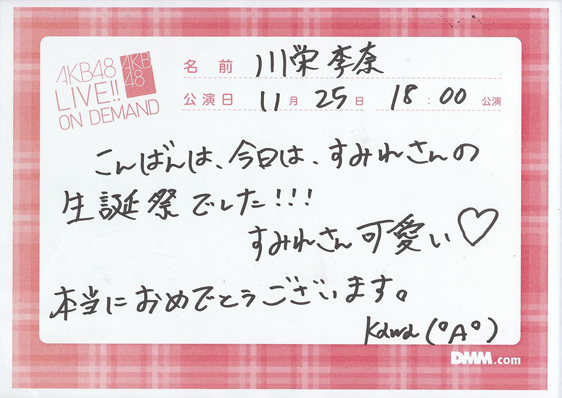 AKB48
LIVE!!
ON DEMAND
AKB
48
名前 川栄李奈
公演日 11月25日 18:00 公演
こんばんは、今日は、すみれさんの
生誕祭でした!!!
すみれさん可愛い♡
本当におめでとうございます。
Kawa(°A°)
DMM.com